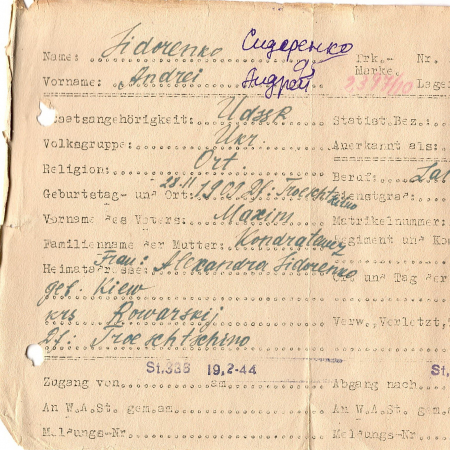 Name: Sidorenko Сидоренко Erk.- Nr.
Marke.
Vorname: Andrei Андрей Lage
Staatsangehörigkeit: UdSSR Statist.Bez.:
Volksgruppe: Ukr. Auerkannt als:
Religion: Ort. Beruf:
Geburtstag- und Ort: 28.11.1909 Dienstgrad:
Vorname des Vaters: Maxim Matrikelnummer:
Familienname der Mutter: Regiment und
Heimatadresse: Frau: Alexandra Sidorenko Ort und Tag der
Kiew
krs Rowarskij Verw., Verletzt,
Df: Troeschtschino
St.338 19.2-44 St.
Zugang von am Abgang nach
An W.A.St. gem.am. An W.A.St. gem.
Meldungs-Nr. Meldungs-Nr.